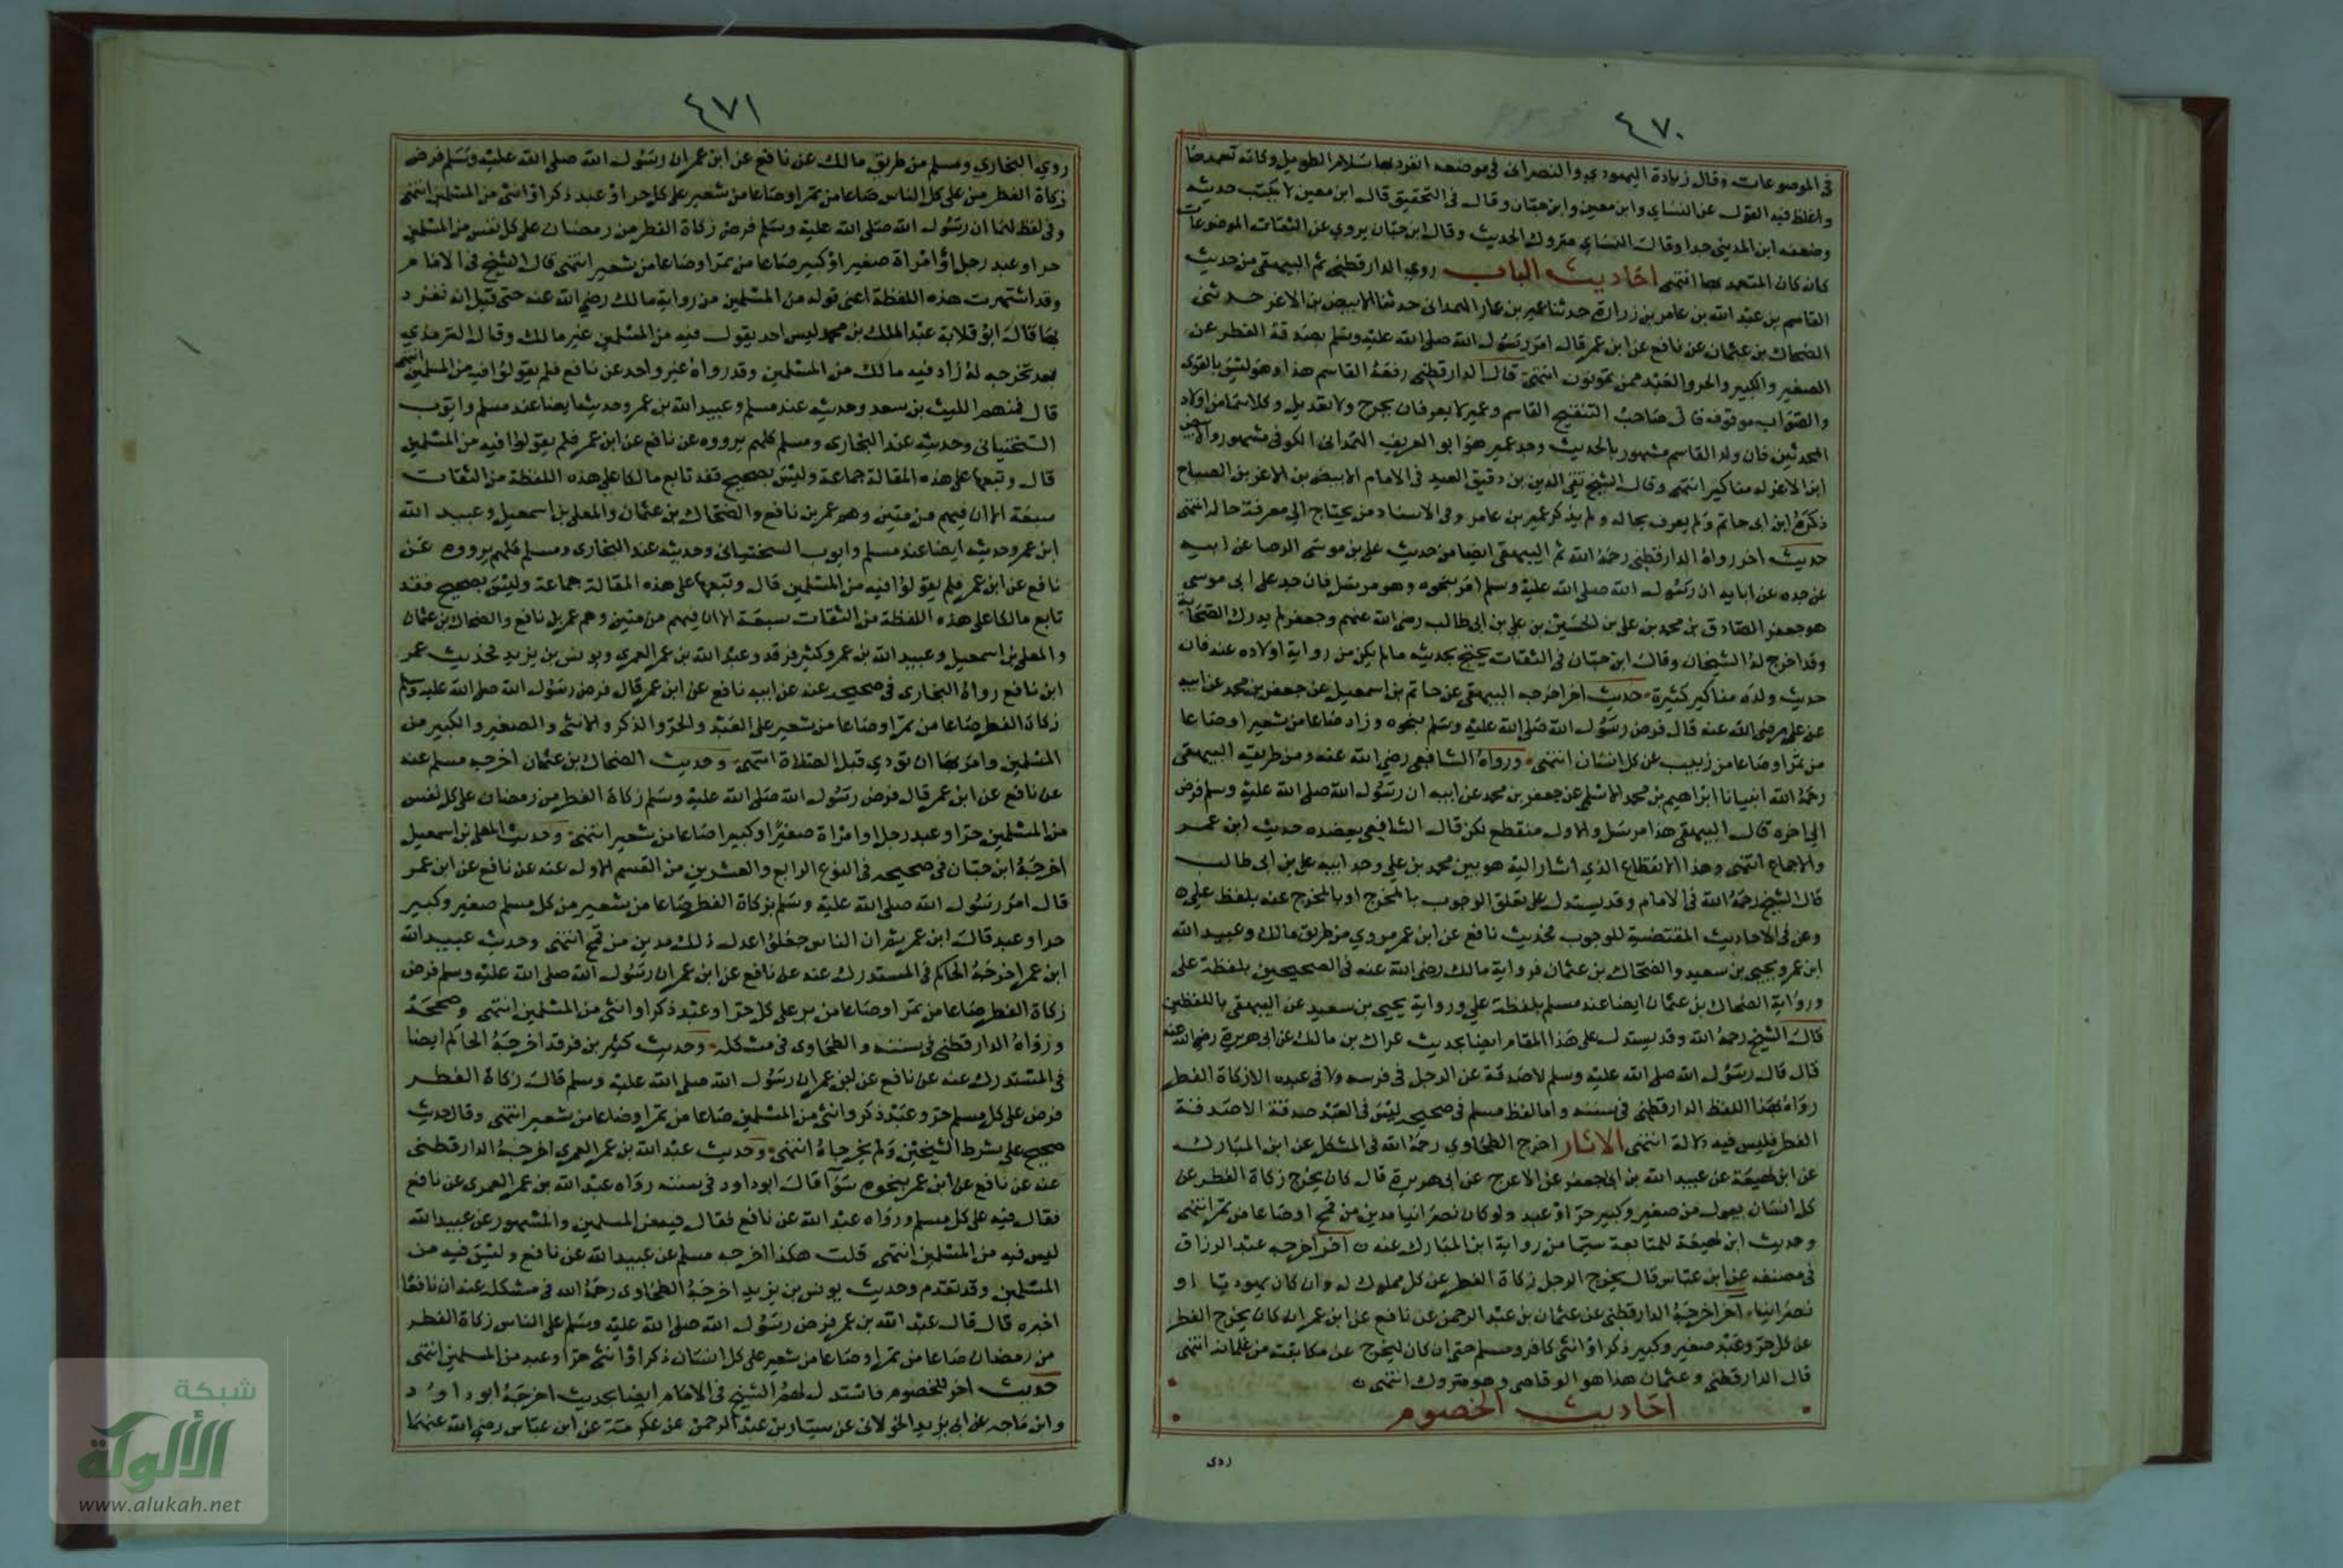 ٤٧٠
في الموضوعات وقال زيادة اليهودي والنصراني في موضعه انفرد بها سلام الطويل وكانه تعمدها
واغلظ فيه القول عن النساي وابن معين وابن حبان وقال في التحقيق قال ابن معين لا يكتب حديثه
وضعفه ابن المديني جدا وقال النساي متروك الحديث وقال ابن حبان يروي عن الثقات الموضوعات
كانه كان المتعمد لها انتهى احاديث الباب روي الدارقطني ثم البيهقي من حديث
القاسم بن عبد الله بن عامر بن زرارة حدثنا عمير بن عمار الهمداني حدثنا الابيض بن الاغر حدثني
الضحاك بن عثمان عن نافع عن ابن عمر قال امر رسول الله صلى الله عليه وسلم بصدقة الفطر عن
الصغير والكبير والحر والعبد ممن تمونون انتهى قال الدارقطني رفعه القاسم هذا وهو ليس بالقوي
والصواب موقوف قال صاحب التنقيح القاسم وعمير لا يعرفان بجرح ولا تعديل وكلاهما من اولاد
المحدثين فان والد القاسم مشهور بالحديث وجد عمير هو ابو الغريف الهمداني الكوفي مشهور والابيض
ابن الاغر له مناكير انتهى وقال الشيخ تقي الدين بن دقيق العيد في الامام الابيض بن الاغر بن الصباح
ذكره ابن ابي حاتم ولم يعرف بحاله ولم يذكر عمير بن عامر وفي الاسناد من يحتاج الي معرفة حاله انتهى
حديث اخر رواه الدارقطني رحمه الله ثم البيهقي ايضا من حديث علي بن موسى الرضا عن ابيه
عن جده عن ابايه ان رسول الله صلى الله عليه وسلم امر بنحوه وهو مرسل فان جد علي ابي موسي
هو جعفر الصادق بن محمد بن علي بن الحسين بن علي بن ابي طالب رضي الله عنهم وجعفر لم يدرك الصحابة
وقد اخرج له الشيخان وقال ابن حبان في الثقات يحتج بحديثه مالم يكن من رواية اولاده عنه فان
حديث ولده مناكير كثيرة حديث اخر اخرجه البيهقي عن حاتم بن اسمعيل عن جعفر بن محمد عن ابيه
عن علي رضي الله عنه قال فرض رسول الله صلى الله عليه وسلم بنحوه وزاد صاعا من شعير او صاعا
من تمر او صاعا من زبيب عن كل انسان انتهى ورواه الشافعي رضي الله عنه ومن طريقه البيهقي
رحمه الله انبيانا ابراهيم بن محمد الاسلمي عن جعفر بن محمد عن ابيه ان رسول الله صلى الله عليه وسلم فرض
الي اخره قال البيهقي هذا مرسل والاول منقطع لكن قال الشافعي يعضده حديث ابن عمر
والاجماع انتهى وهذا الانقطاع الذي اشار اليه هو بين محمد بن علي وجد ابيه علي بن ابي طالب
قال الشيخ رحمه الله في الامام وقد يستدل علي تعلق الوجوب بالمخرج او بالمخرج عنه بلفظ علي
وعن في الاحاديث المقتضية للوجوب فحديث نافع عن ابن عمر مروي من طريق مالك وعبيد الله
ابن عمر ويحيي بن سعيد والضحاك بن عثمان فرواية مالك رضي الله عنه في الصحيحين بلفظة علي
ورواية الضحاك بن عثمان ايضا عند مسلم بلفظة علي ورواية يحيي بن سعيد عن البيهقي باللفظين
قال الشيخ رحمه الله وقد يستدل على هذا المقام ايضا بحديث عراك بن مالك عن ابي هريرة رضي الله عنه
قال قال رسول الله صلى الله عليه وسلم لا صدقة عن الرجل في فرسه ولا في عبده الا زكاة الفطر
رواه بهذا اللفظ الدارقطني في سننه واما لفظ مسلم في صحيحه ليس في العبد صدقة الا صدقة
الفطر فليس فيه دلالة انتهى الاثار اخرج الطحاوي رحمه الله في المشكل عن ابن المبارك
عن ابن لهيعة عن عبيد الله بن ابي جعفر عن الاعرج عن ابي هريرة قال كان يخرج زكاة الفطر عن
كل انسان يعول من صغير وكبير حر او عبد ولو كان نصرانيا مدين من قمح او صاعا من تمر انتهى
وحديث ابن لهيعة للمتابعة سيما من رواية ابن المبارك عنه اخر اخرجه عبد الرزاق
في مصنفه عن ابن عباس قال يخرج الرجل زكاة الفطر عن كل مملوك له وان كان يهوديا او
نصرانيا اخر اخرجه الدارقطني عن عثمان بن عبد الرحمن عن نافع عن ابن عمر انه كان يخرج الفطر
عن كل حر وعبد صغير وكبير ذكر او انثى كافر ومسلم حتي ان كان ليخرج عن مكاتبته من غلمانه انتهى
قال الدارقطني وعثمان هذا هو الوقاصي وهو متروك انتهى
احاديث الخصوم
روى
٤٧١
روي البخاري ومسلم من طريق مالك عن نافع عن ابن عمر ان رسول الله صلى الله عليه وسلم فرض
زكاة الفطر من على كل الناس صاعا من تمر او صاعا من شعير على كل حر او عبد ذكر او انثى من المسلمين انتهى
وفي لفظ لهما ان رسول الله صلى الله عليه وسلم فرض زكاة الفطر من رمضان على كل نفس من المسلمين
حر او عبد رجل او امراة صغير او كبير صاعا من تمر او صاعا من شعير انتهى قال الشيخ في الامام
وقد اشتهرت هذه اللفظة اعني قوله من المسلمين من رواية مالك رضي الله عنه حتى قيل انه تفرد
بها قال ابو قلابة عبد الملك بن محمد ليس احد يقول فيه من المسلمين غير مالك وقال الترمذي
بعد تخرجه له زاد فيه مالك من المسلمين وقد رواه غير واحد عن نافع فلم يقولوا فيه من المسلمين انتهى
قال فمنهم الليث بن سعد وحديثه عند مسلم وعبيد الله بن عمر وحديثه ايضا عند مسلم وايوب
السختياني وحديثه عند البخاري ومسلم كلهم يرووه عن نافع عن ابن عمر فلم يقولوا فيه من المسلمين
قال وتبعها على هذه المقالة جماعة وليس بصحيح فقد تابع مالكا علي هذه اللفظة من الثقات
سبعة الا ان فيهم من متين وهم عمر بن نافع والضحاك بن عثمان والمعلي بن اسمعيل وعبيد الله
ابن عمر وحديثه ايضا عند مسلم وايوب السختياني وحديثه عند البخاري ومسلم كلهم يرووه عن
نافع عن ابن عمر فلم يقولوا فيه من المسلمين قال وتبعها على هذه المقالة جماعة وليس بصحيح فقد
تابع مالكا على هذه اللفظة من الثقات سبعة الا ان فيهم من متين وهم عمر بن نافع والضحاك بن عثمان
والمعلي بن اسمعيل وعبيد الله بن عمر وكثير فرقد وعبد الله بن عمر العمري ويونس بن يزيد فحديث عمر
ابن نافع رواه البخاري في صحيحه عنه عن ابيه نافع عن ابن عمر قال فرض رسول الله صلى الله عليه وسلم
زكاة الفطر صاعا من تمر او صاعا من شعير على العبد والحر والذكر والانثى والصغير والكبير من
المسلمين وامر بها ان تودي قبل الصلاة انتهى وحديث الضحاك بن عثمان اخرجه مسلم عنه
عن نافع عن ابن عمر قال فرض رسول الله صلى الله عليه وسلم زكاة الفطر من رمضان على كل نفس
من المسلمين حر او عبد رجل او امراة صغير او كبير صاعا من شعير انتهى وحديث المعلي بن اسمعيل
اخرجه ابن حبان في صحيحه في النوع الرابع والعشرين من القسم الاول عنه عن نافع عن ابن عمر
قال امر رسول الله صلى الله عليه وسلم بزكاة الفطر صاعا من شعير من كل مسلم صغير وكبير
حر او عبد قال ابن عمر ان الناس جعلوا عدل ذلك مدين من قمح انتهى وحديث عبيد الله
ابن عمر اخرجه الحاكم في المستدرك عنه عن نافع عن ابن عمر ان رسول الله صلى الله عليه وسلم فرض
زكاة الفطر صاعا من تمر او صاعا من بر على كل حر او عبد ذكر او انثى من المسلمين انتهى وصححه
ورواه الدارقطني في سننه والطحاوي في مشكله وحديث كثير بن فرقد اخرجه الحاكم ايضا
في المستدرك عنه عن نافع عن ابن عمر ان رسول الله صلى الله عليه وسلم قال زكاة الفطر
فرض على كل مسلم حر وعبد ذكر وانثى من المسلمين صاعا من تمر او صاعا من شعير انتهى وقال حديث
صحيح على شرط الشيخين ولم يخرجاه انتهى وحديث عبد الله بن عمر العمري اخرجه الدارقطني
عنه عن نافع عن ابن عمر بنحوه سوآ قال ابو داود في سننه رواه عبد الله بن عمر العمري عن نافع
فقال فيه على كل مسلم ورواه عبد الله عن نافع فقال فيه من المسلمين والمشهور عن عبيد الله
ليس فيه من المسلمين انتهى قلت هكذا اخرجه مسلم عن عبيد الله عن نافع وليس فيه من
المسلمين وقد تقدم وحديث يونس بن يزيد اخرجه الطحاوي رحمه الله في مشكله عنه ان نافعا
اخبره قال قال عبد الله بن عمر فرض رسول الله صلى الله عليه وسلم على الناس زكاة الفطر
من رمضان صاعا من تمر او صاعا من شعير على كل انسان ذكر او انثى حر او عبد من المسلمين انتهى
حديث اخر للخصوم فاستدل لهم الشيخ في الامام ايضا بحديث اخرجه ابو داود
وابن ماجه عن ابي يزيد الخولاني عن سيار بن عبد الرحمن عن عكرمة عن ابن عباس رضي الله عنهما
شبكة
الألوكة
www.alukah.net